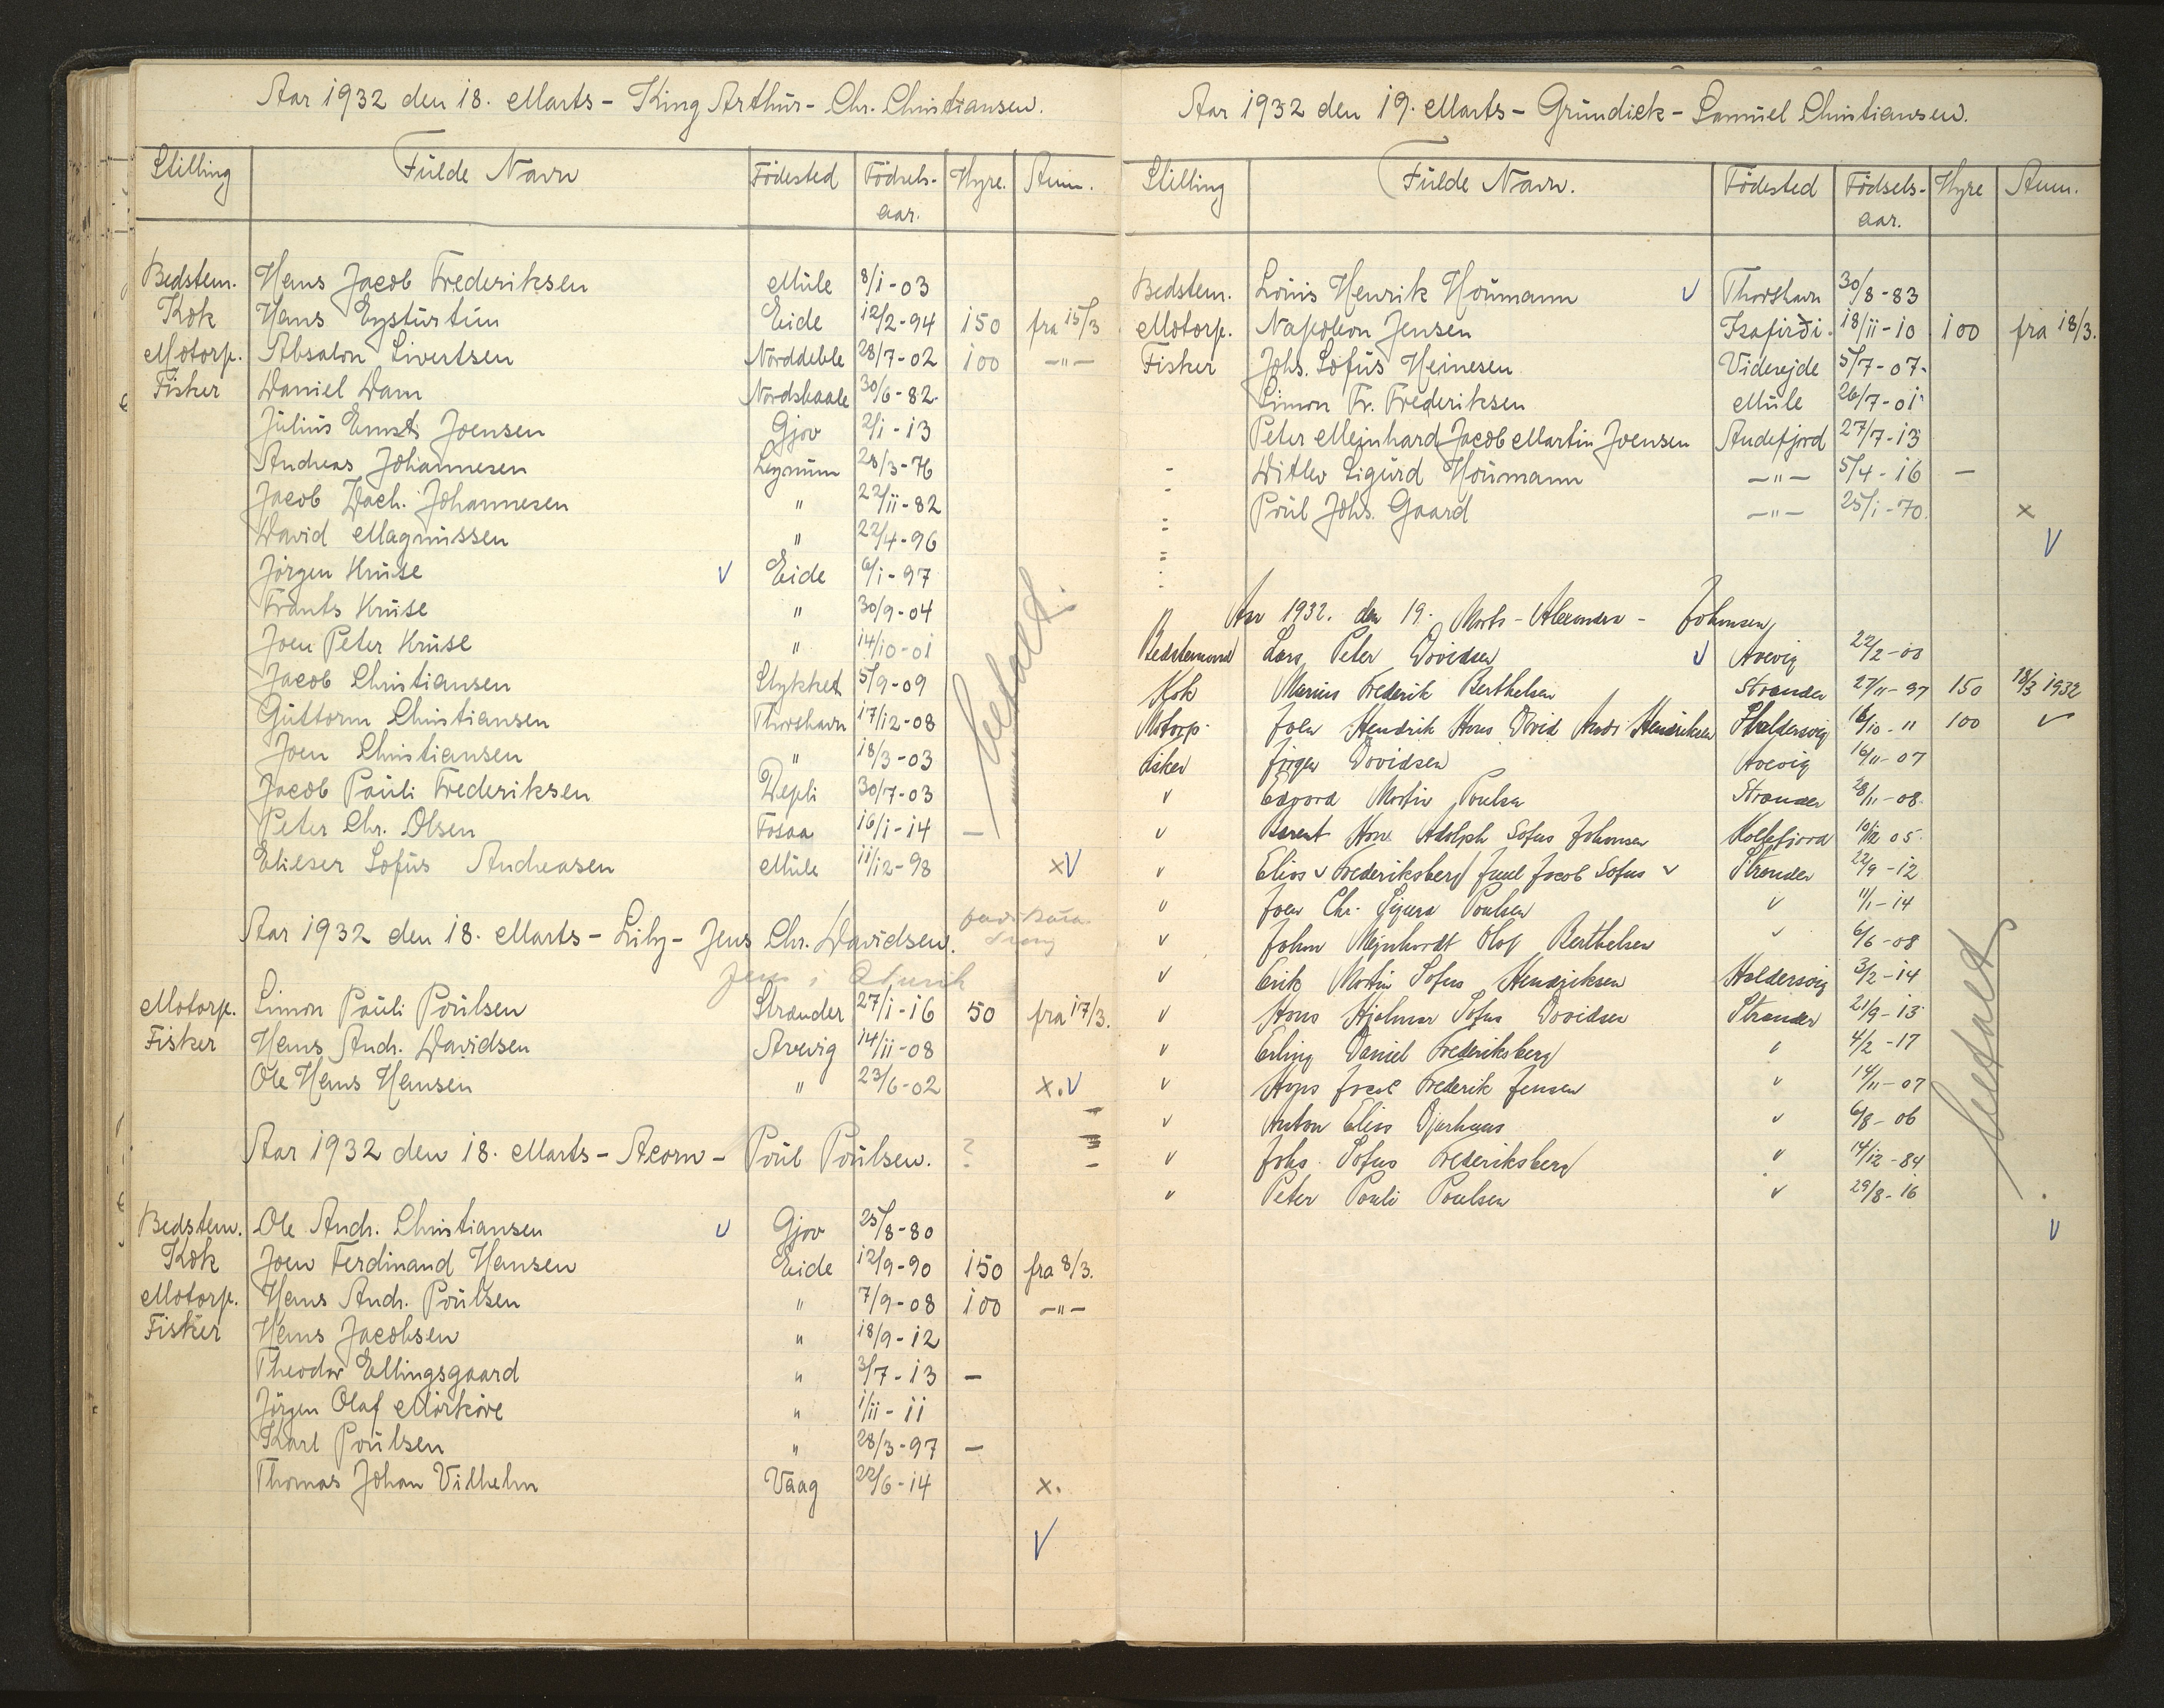 Aar 1932 den 18. Marts - King Arthur - Chr. Christiansen.
Stilling Fulde Navn Födested Födsels-aar. Hyre. Anm.
Bedstem. Hans Jacob Frederiksen Mule 8/1-03
Kok Hans Eysturtún Eide 12/2-94 150 fra 15/3
Motorp. Absalon Livertsen Norddeble 28/7-02 100 -"-
Fisker Daniel Dam Nordskaale 30/6-82
Julius Ernst Joensen Gjov 2/1-13
Andreas Johannesen Lejnum 28/3-76
Jacob Zach. Johannesen " 22/11-82
David Magnussen " 22/4-96
Jörgen Kruse V Eide 6/1-97
Frants Kruse " 30/9-04
Joen Peter Kruse " 14/10-01
Jacob Christiansen Stykket 5/9-09
Guttorm Christiansen Thorshavn 17/12-08
Joen Christiansen " 18/3-03
Jacob Pauli Frederiksen Depli 30/7-03
Peter Chr. Olsen Fosaa 16/1-14 -
Elieser Sofus Andreasen Mule 11/12-98 x V
Aar 1932 den 18. Marts - Lily - Jens Chr. Davidsen.
Jens i
Motorp. Simon Pauli Poulsen Strander 27/1-16 50 fra 17/3.
Fisker Hans Andr. Davidsen Arevig 14/11-08
Ole Hans Hansen " 23/6-02 x. V
Aar 1932 den 18. Marts - Acorn - Poul Poulsen. ?
Bedstem. Ole Andr. Christiansen V Gjov 25/8-80
Kok Joen Ferdinand Hansen Eide 12/9-90 150 fra 8/3.
Motorp. Hans Andr. Poulsen " 7/9-08 100 -"-
Fisker Hans Jacobsen " 18/9-12
Theodor Ellingsgaard " 3/7-13 -
Jörgen Olaf Mörköre " 1/11-11
Karl Poulsen " 28/3-97 -
Thomas Johan Vilhelm Vaag 22/6-14 x.
V
Aar 1932 den 19. Marts - Grundick - Samuel Christiansen.
Stilling Fulde Navn. Födested Födsels-aar. Hyre Anm.
Bedstem. Louis Henrik Houmann V Thorshavn 30/8-83
Motorp. Napoleon Jensen Isafirði. 18/11-10 100 fra 18/3.
Fisker Johs. Sofus Heinesen Viderejde 5/7-07.
Simon Fr. Frederiksen Mule 26/7-01
Peter Meinhard Jacob Martin Joensen Andefjord 27/7-13
Ditlev Sigurd Houmann -"- 5/4-16 -
Poul Johs. Gaard -"- 25/1-70. x
V
Aar 1932. den 19. Marts - Alexandra - Johansen
Bedstemand Lars Peter Davidsen V Arevig 22/2-03
Kok Marius Frederik Berthelsen Strander 27/11-97 150 18/3 1932
Motorp. Joen Hendrik Hans David Andr. Hendriksen Haldersvig 16/10-11 100 "
Fisker Jörgen Davidsen Arevig 16/11-07
" Edvard Martin Poulsen Strander 28/11-08.
" Berent Hans Adolph Sofus Johansen Kollefjord 10/12 05.
" Elias v Frederiksberg Juul Jacob Sofus v Strander 22/9-12
" Joen Chr. Sigurd Poulsen " 11/1-14
" Johan Mejnhardt Olaf Berthelsen " 6/6-08
" Erik Martin Sofus Hendriksen Haldersvig 3/2-14
" Hans Hjalmar Sofus Davidsen Strander 21/9-13
" Erling Daniel Frederiksberg " 4/2-17
" Hans Jacob Frederik Jensen " 14/11-07
" Anton Elias Djurhuus " 6/8-06
" Johs. Sofus Frederiksberg " 14/12-84
" Peter Pauli Poulsen " 29/8-16
V